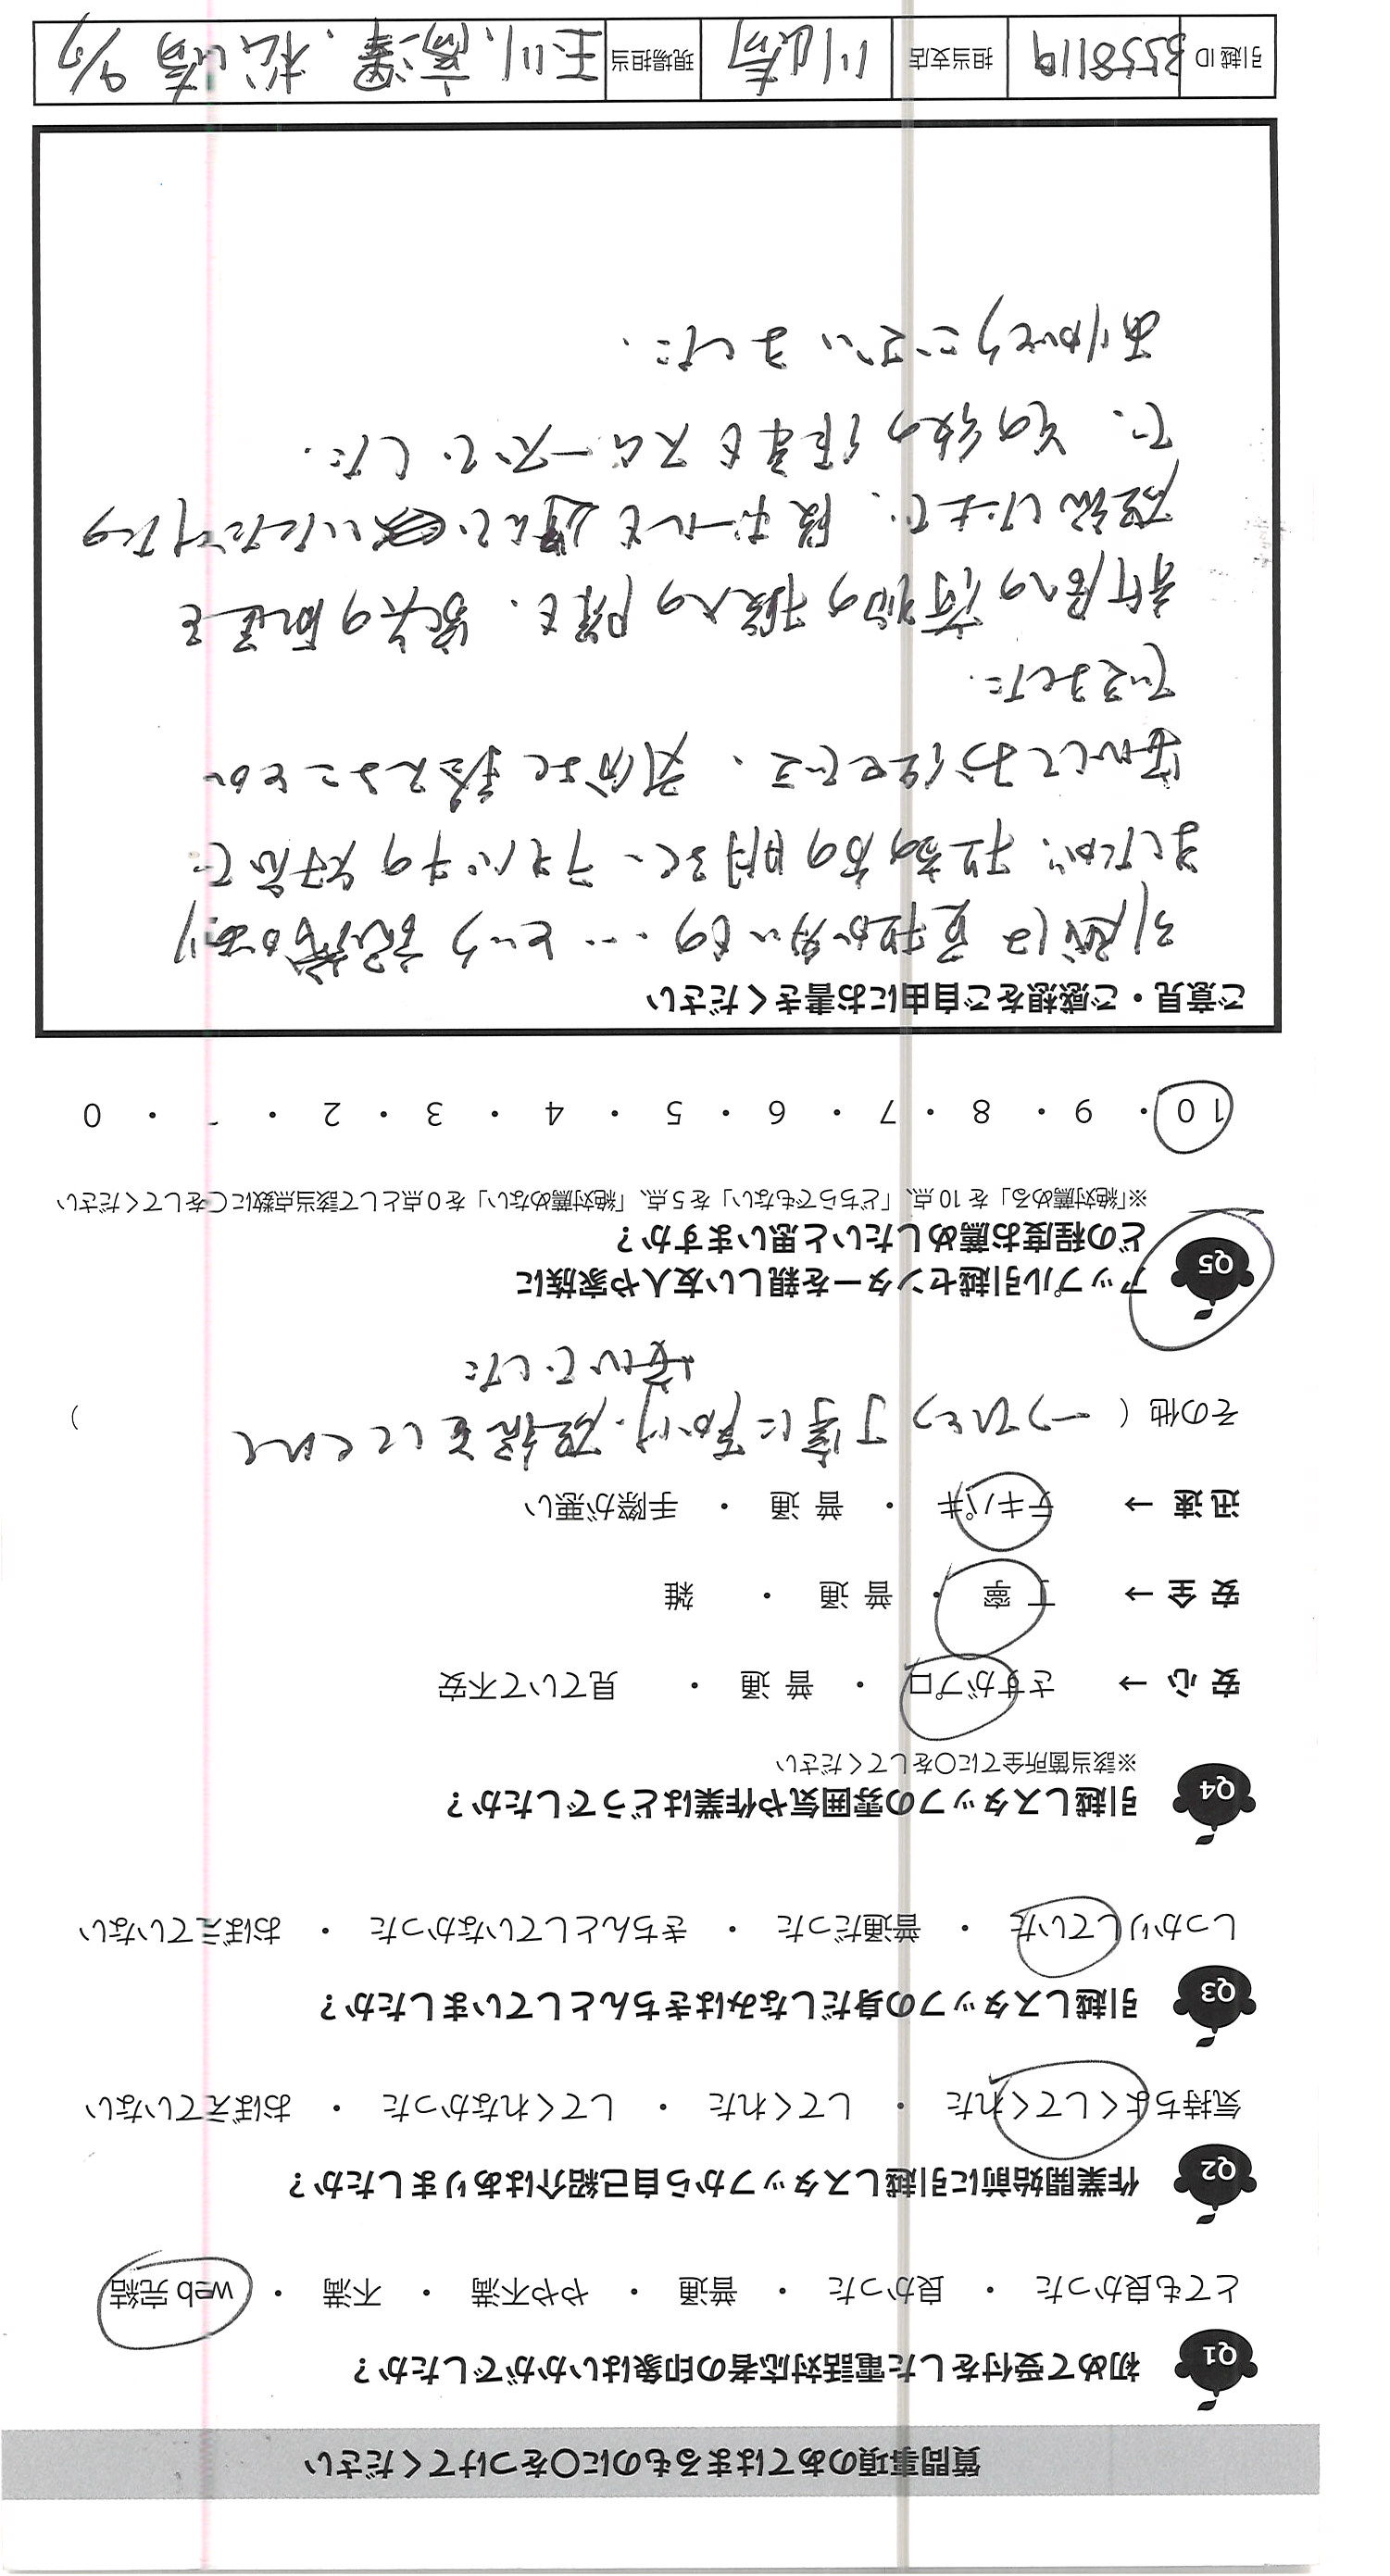 質問事項のあてはまるものに○をつけてください
Q1 初めて受付をした電話対応者の印象はいかがでしたか？
とても良かった ・ 良かった ・ 普通 ・ やや不満 ・ 不満 ・ web 完結
Q2 作業開始前に引越しスタッフから自己紹介はありましたか？
気持ちよくしてくれた ・ してくれた ・ してくれなかった ・ おぼえていない
Q3 引越しスタッフの身だしなみはきちんとしていましたか？
しっかりしていた ・ 普通だった ・ きちんとしていなかった ・ おぼえていない
Q4 引越しスタッフの雰囲気や作業はどうでしたか？
※該当箇所全てに○をしてください
安 心 → さすがプロ ・ 普 通 ・ 見ていて不安
安 全 → 丁 寧 ・ 普 通 ・ 雑
迅 速 → テキパキ ・ 普 通 ・ 手際が悪い
その他（ 一つひとつ丁寧に声かけ、確認をしてくれて ）
安心でした
Q5 アップル引越センターを親しい友人や家族に
どの程度お薦めしたいと思いますか？
※「絶対薦める」を 10 点、「どちらでもない」を 5 点、「絶対薦めない」を 0 点として該当点数に○をしてください
10 ・ 9 ・ 8 ・ 7 ・ 6 ・ 5 ・ 4 ・ 3 ・ 2 ・ 1 ・ 0
ご意見・ご感想をご自由にお書きください
引越は 荷物が多いもの・・・という 認識があり
ましたが、担当の方の明るく、テキパキの対応で
安心してお任せでき、気分よく終えることが
できました．
新居への荷物の搬入の際も、家具の配置を
確認した上で、段ボールも運んでいただけたの
で、その後の作業もスムーズでした．
ありがとうございました．
引越 ID 3558119 担当支店 川崎 現場担当 玉川、高澤、松崎 9/7